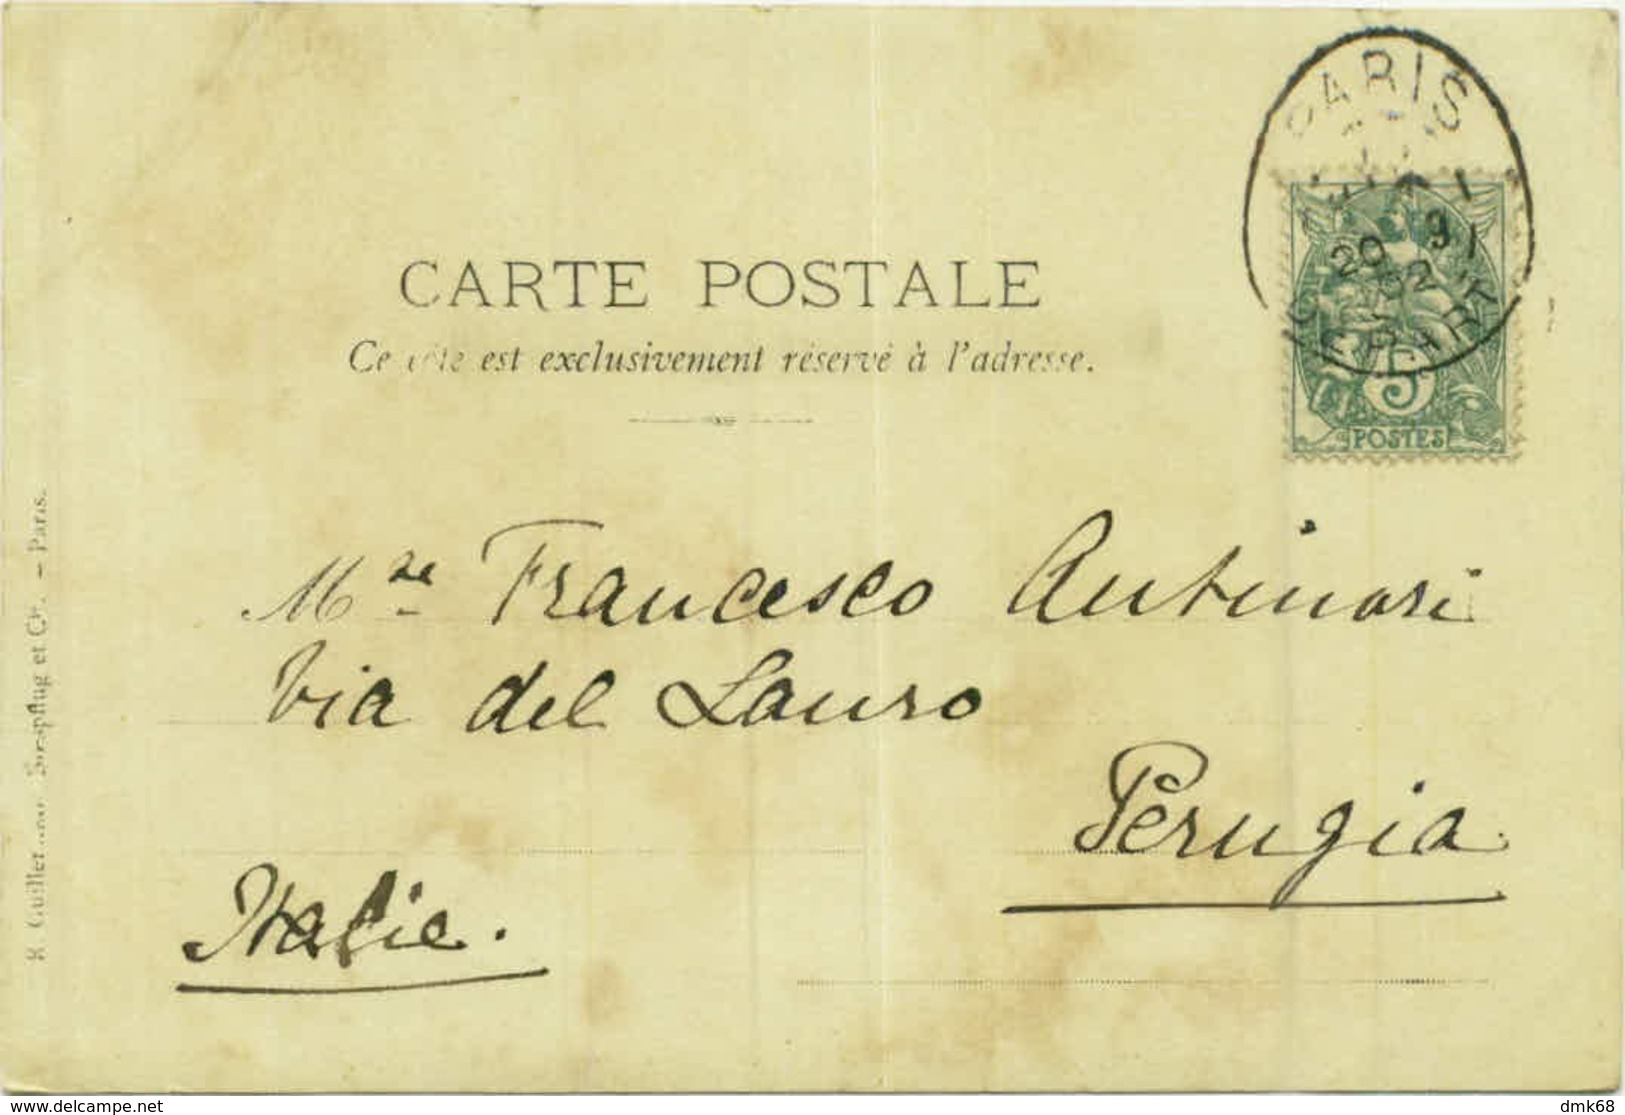 PARIS
20 91
02
DEPART
5
POSTES
CARTE POSTALE
Ce côté est exclusivement réservé à l'adresse.
Mre Francesco Antinori
Via del Lauro
Perugia
Italie.
et Cie. – Paris.
delcampe.net
dmk68